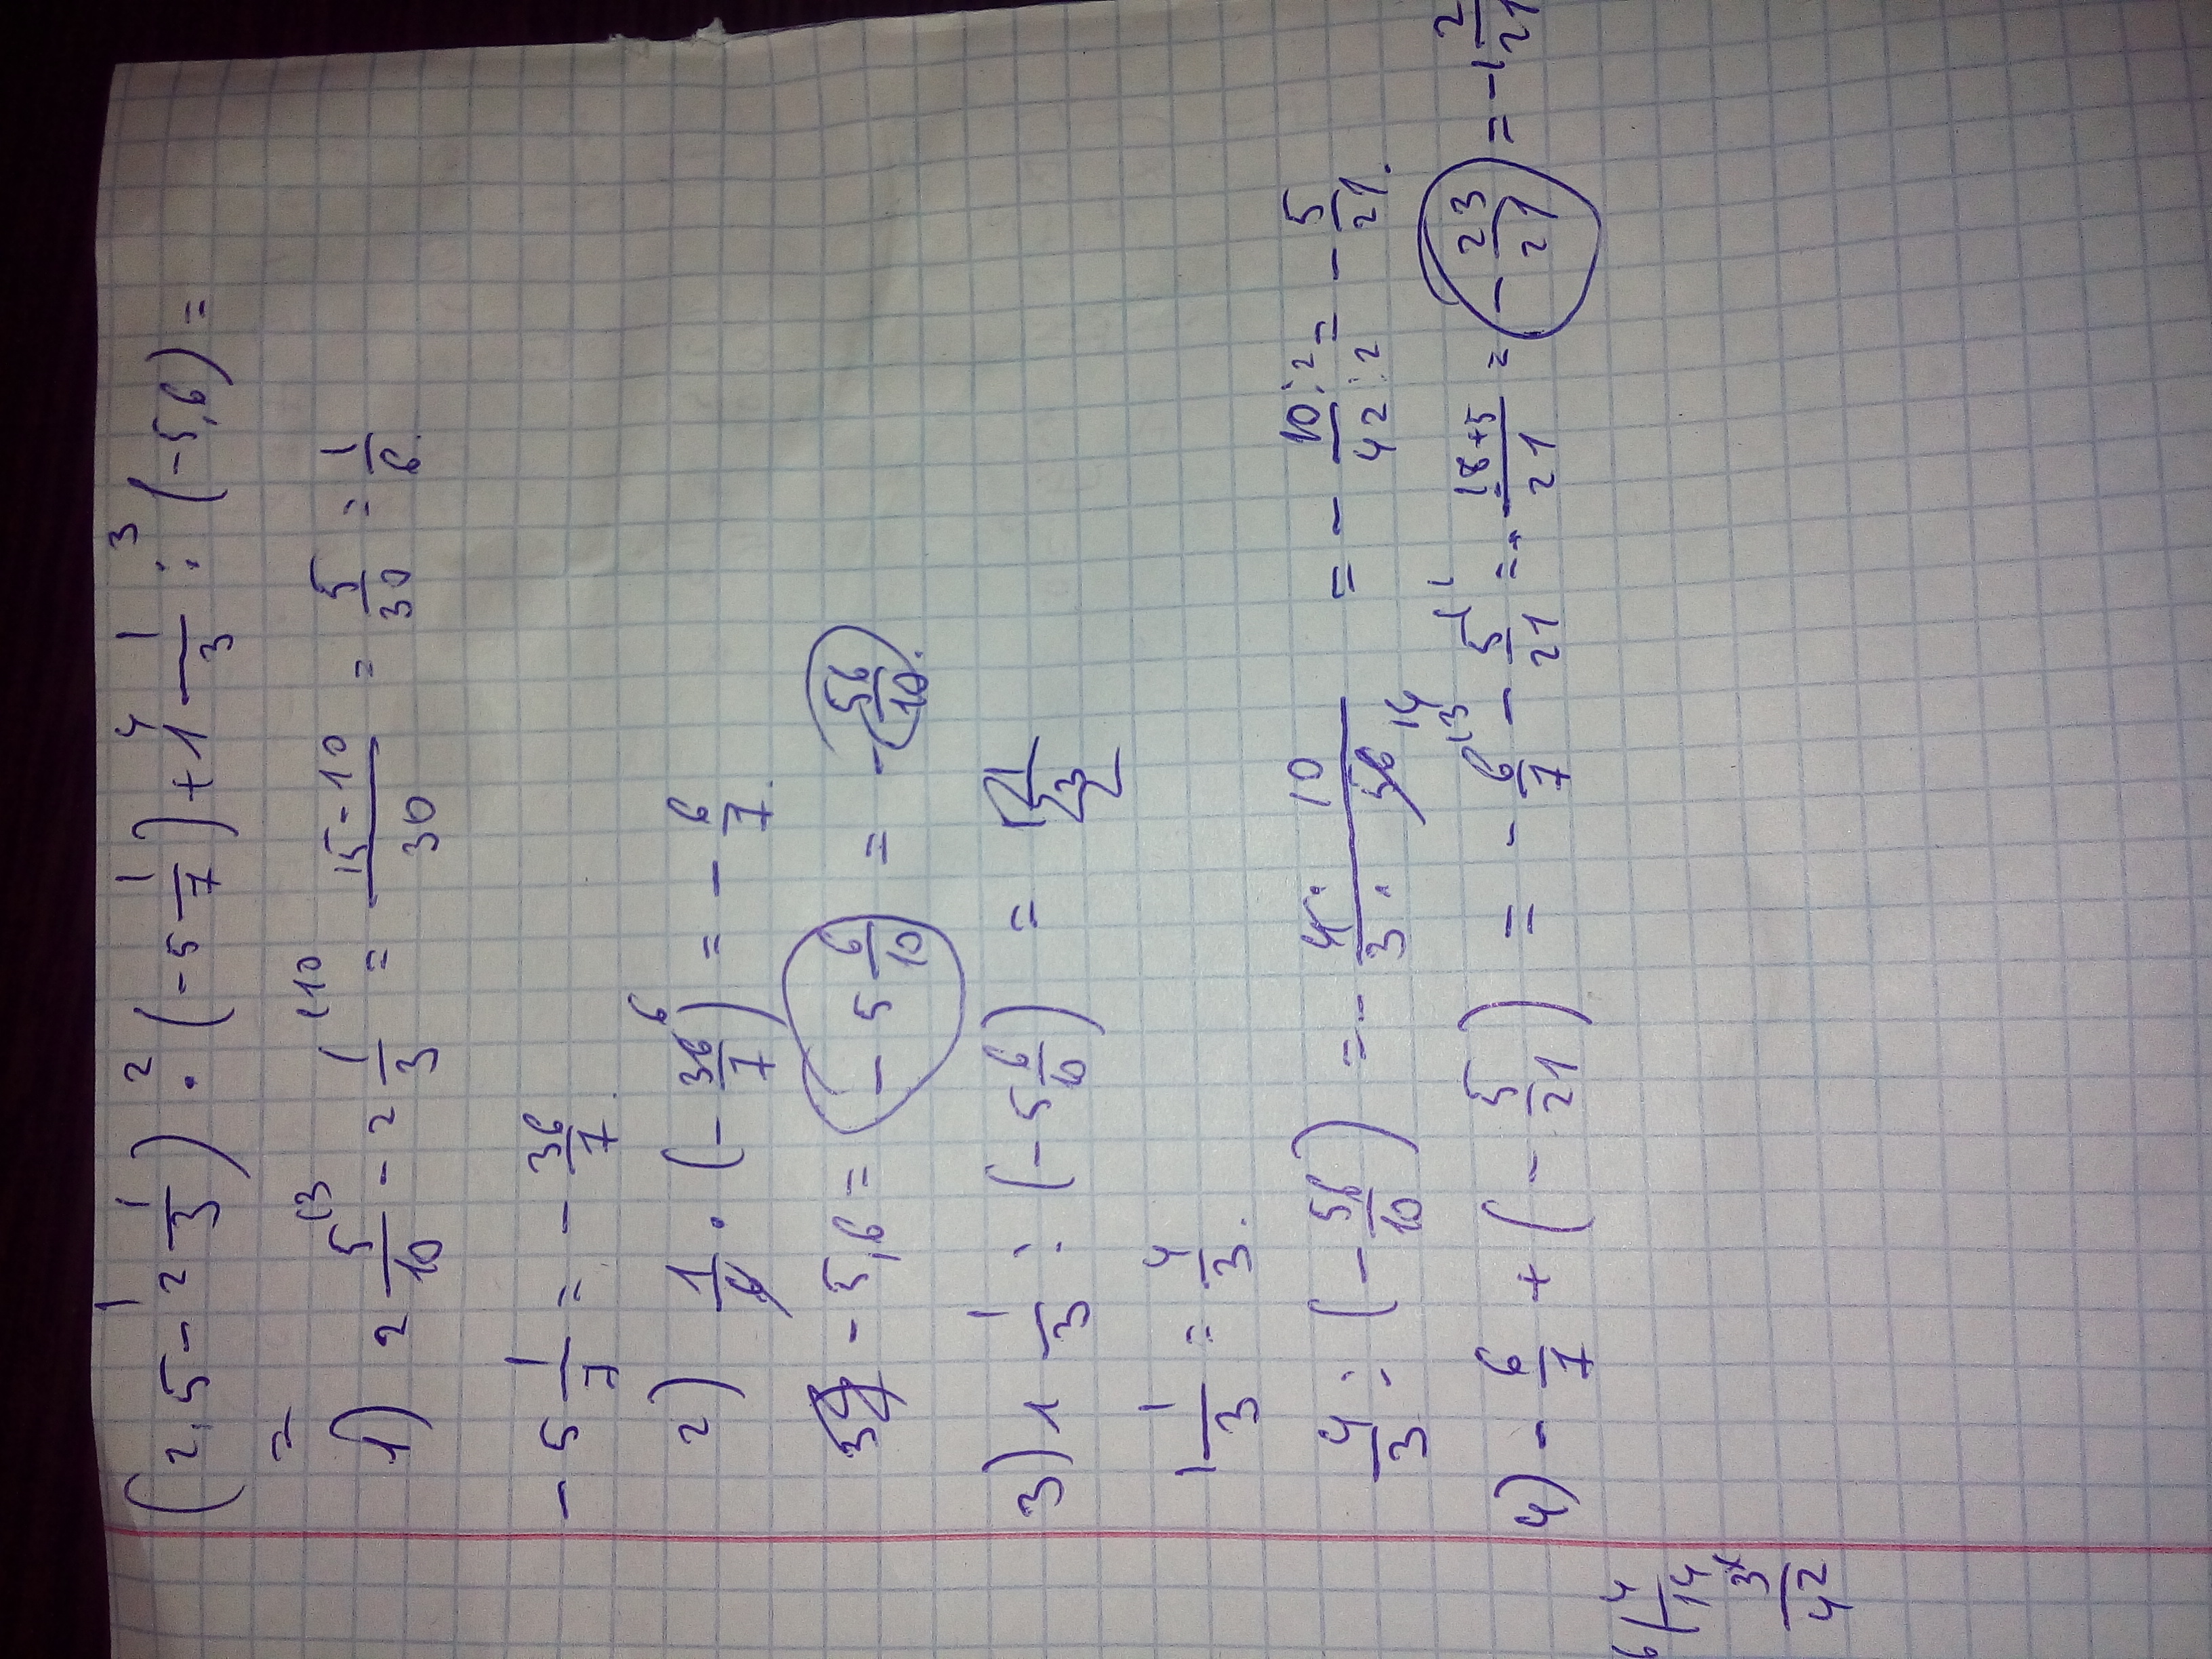 (2,5 - 2 1/3) ·² (-5 1/7) +⁴ 1 1/3 :³ (-5,6) =
=
1) 2 5/10 (3 - 2 1/3 (10 = 15-10/30 = 5/30 = 1/6.
- 5 1/7 = - 36/7.
2) 1/6 · (- 36/7) 6 = - 6/7.
- 5,6 = - 5 6/10 = - 56/10.
3) 1 1/3 : (-5 6/10) =
1 1/3 = 4/3.
4/3 : (- 56/10) = - 4 · 10/3 · 56 14 = - 10:2/42:2 = - 5/21.
4) - 6/7 + (- 5/21) = - 6/7 (3 - 5/21 (1 = - 18+5/21 = - 23/21 = -1 2/21
14
3
42